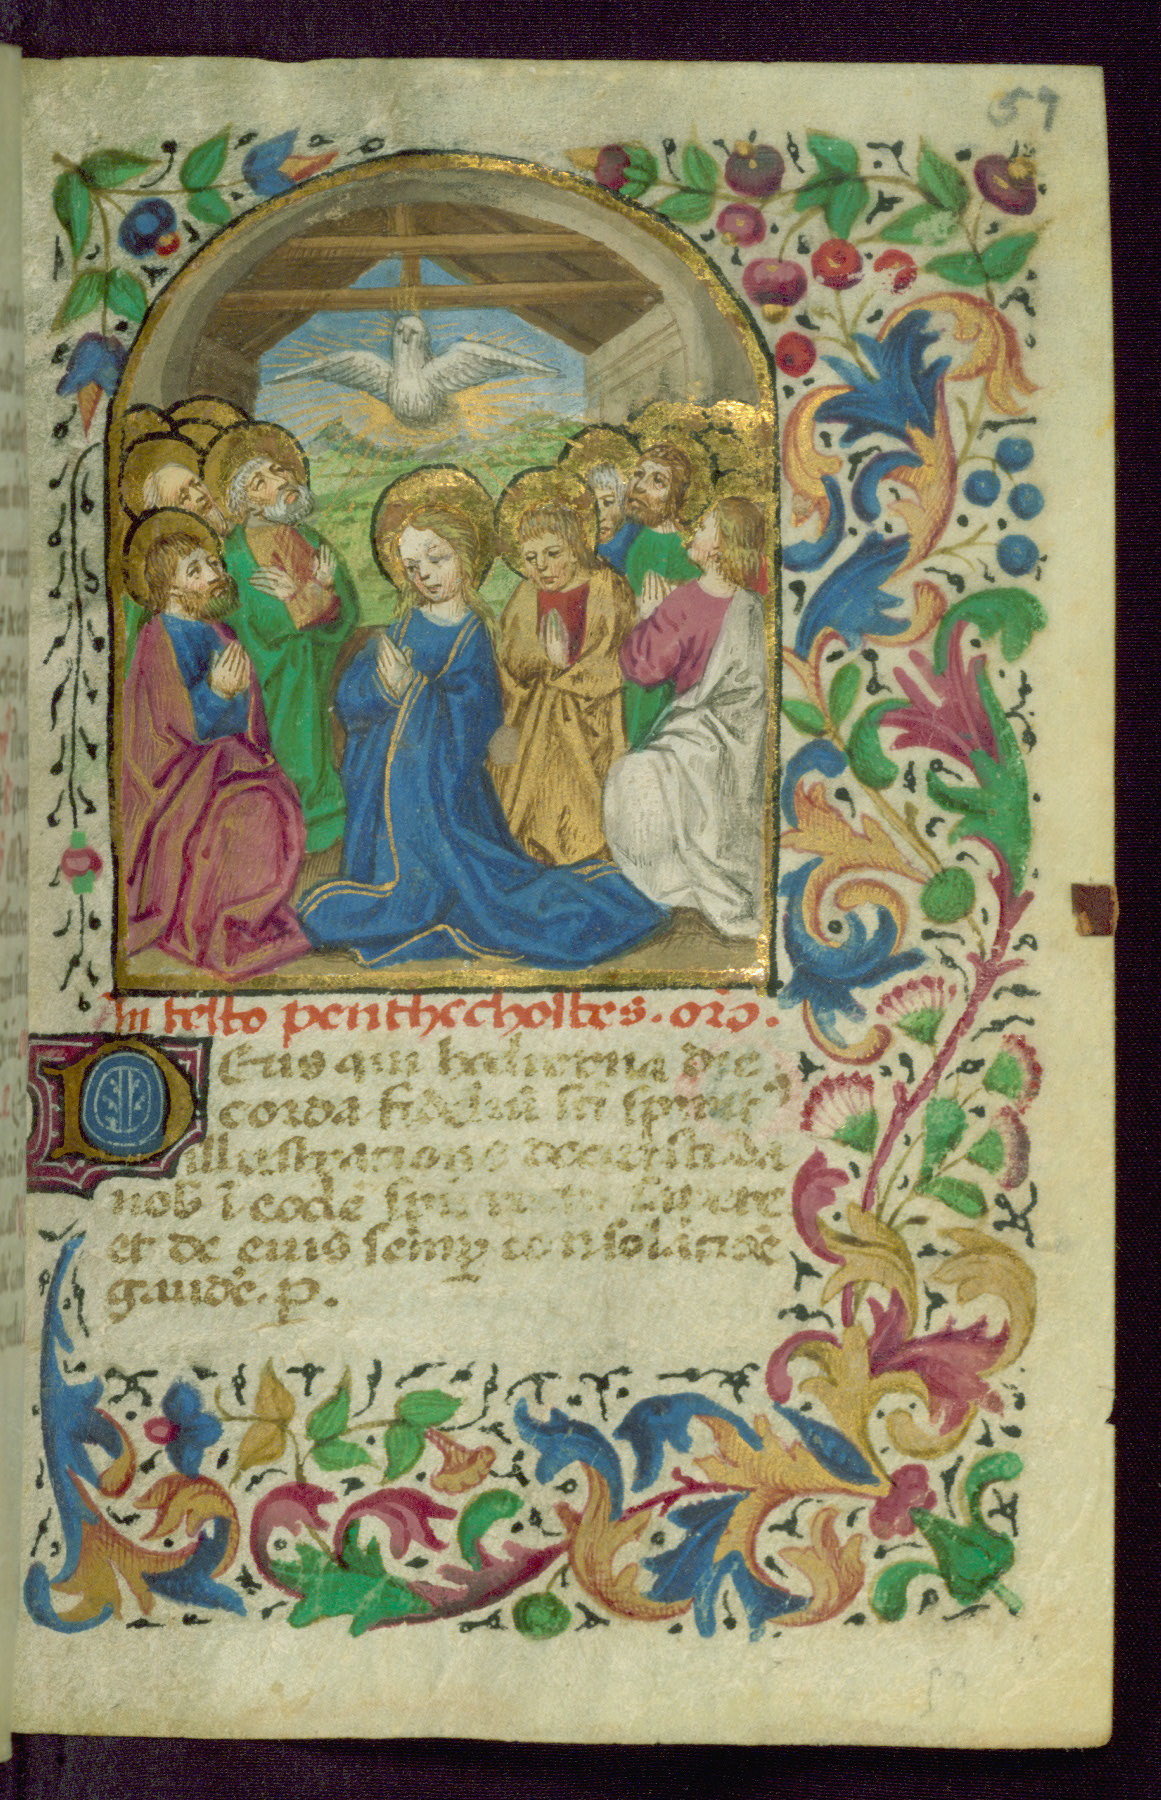 57
In festo penthechostes. orõ.
Deus qui hodierna die
corda fideliũ sci spirit⁹
illustratione docuisti da
nob ĩ eodẽ spũ recta sapere
et de eius semp consolatiõe
gaudẽ. p.